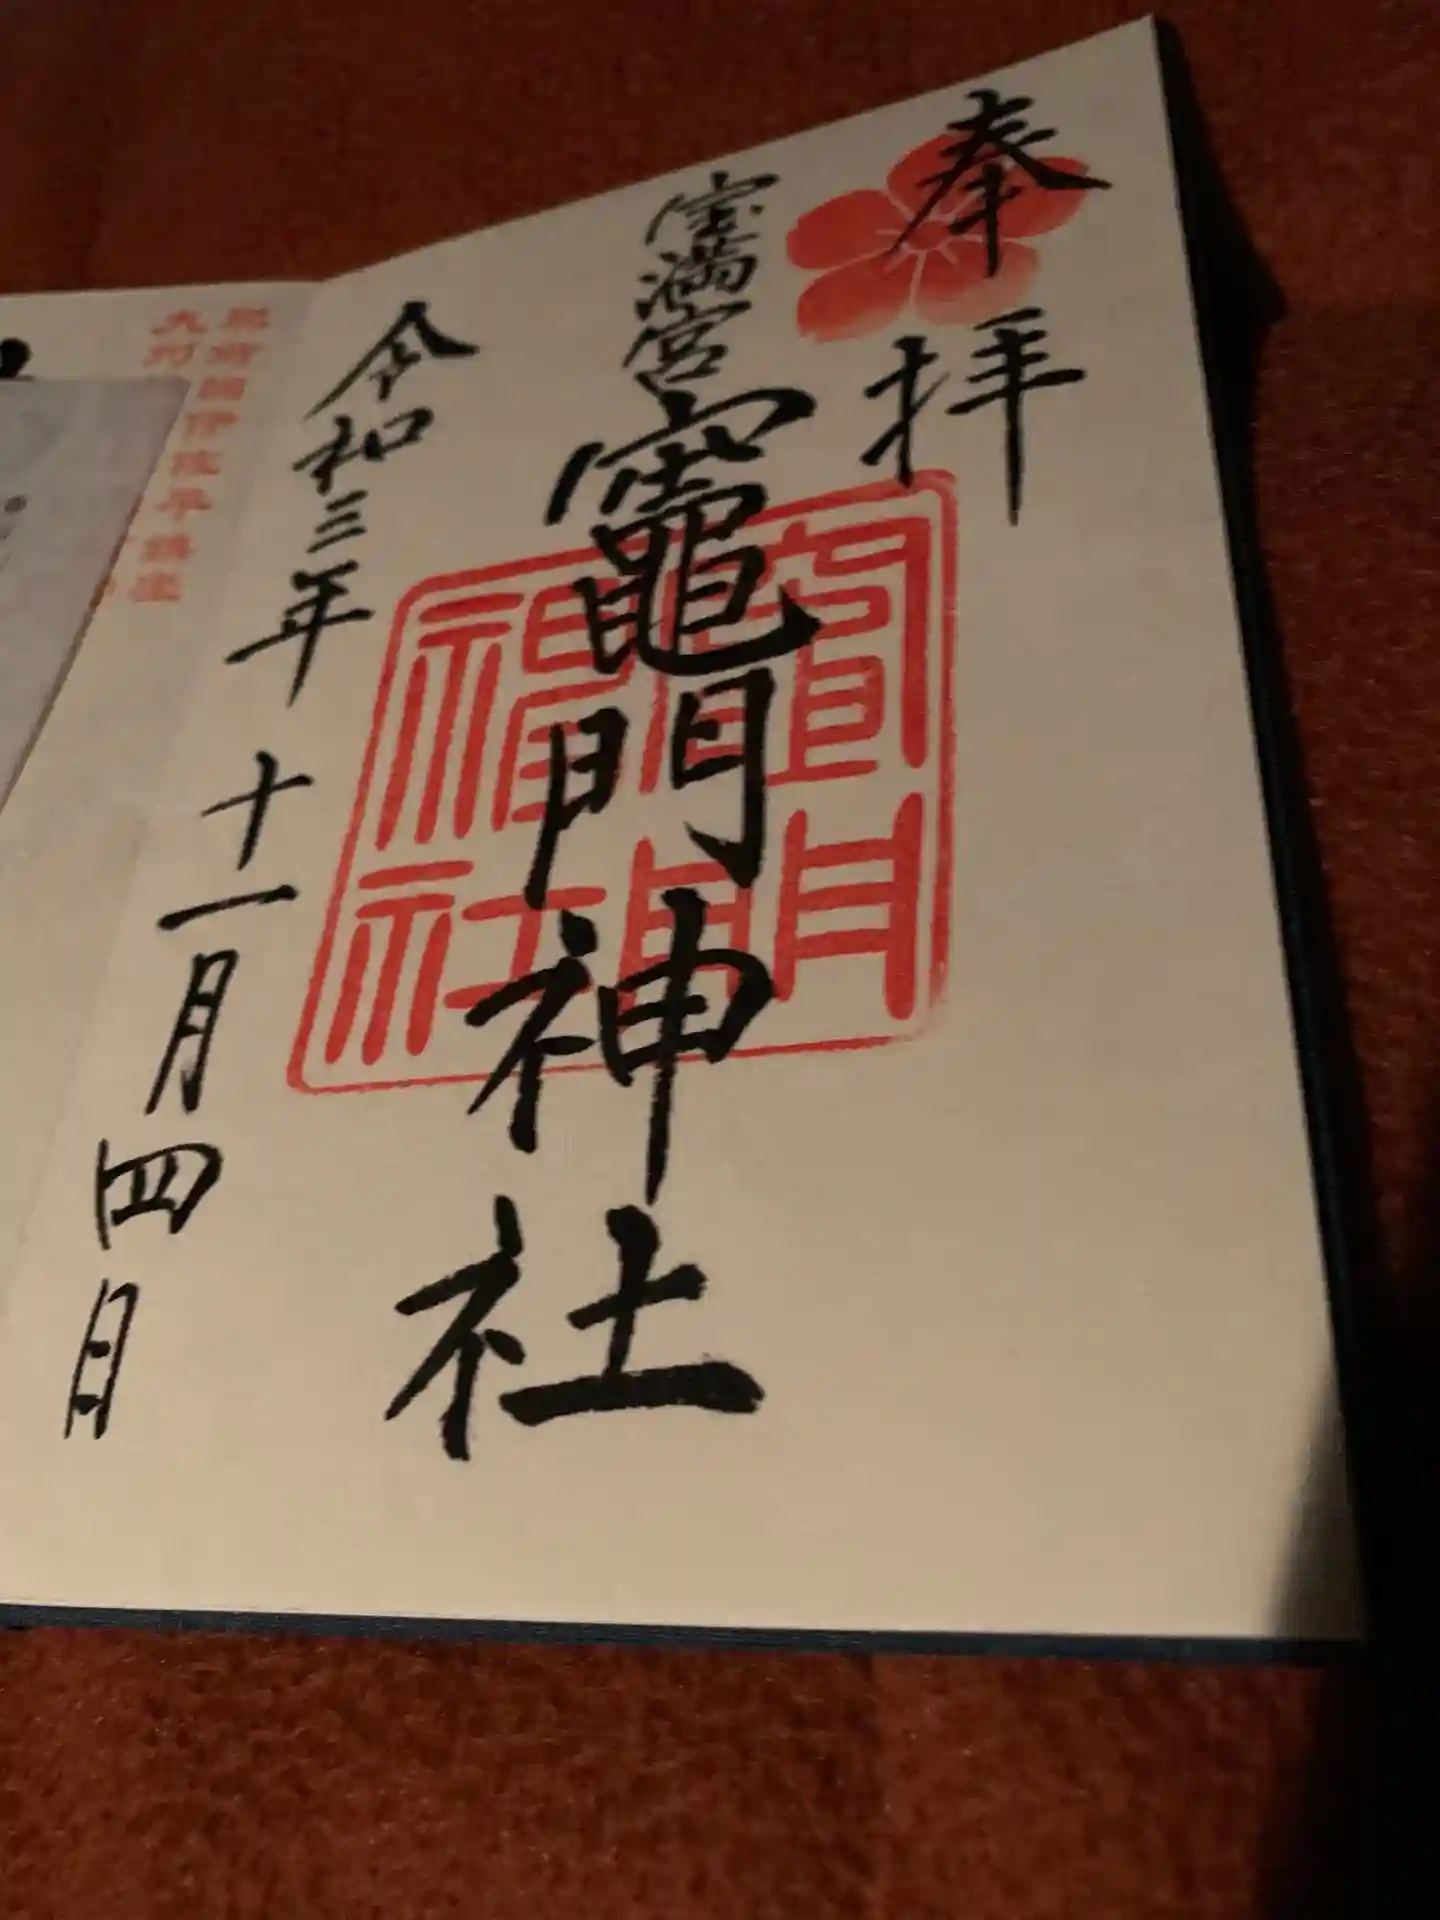 奉拝
宝満宮
竈門神社
竈門神社
令和三年十一月四日